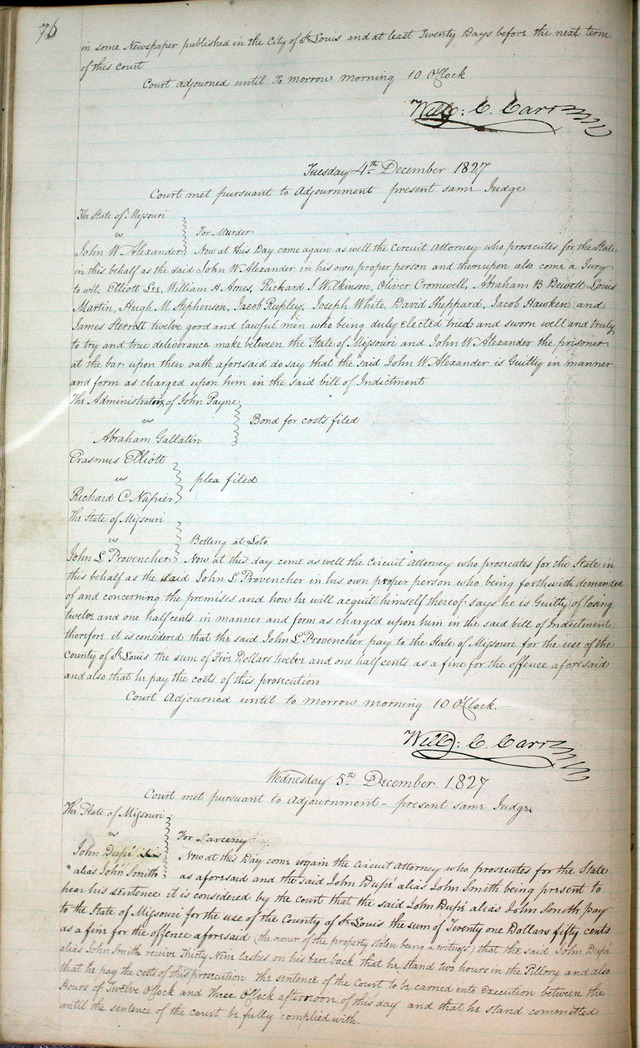 76
in some Newspaper published in the City of St Louis and at least Twenty Days before the next term
of this court
Court adjourned until To morrow morning 10 OClock
Willm: C. Carr
Tuesday 4th December 1827
Court met pursuant to Adjournment present same Judge
The State of Missouri
vs
For Murder
John W. Alexander
Now at this Day come again as well the Circuit Attorney who prosecutes for the State
in this behalf as the said John W. Alexander in his own proper person and thereupon also come a Jury
to wit, Elliott Lee, William H. Jones, Richard J Wilkinson, Oliver Cromwell, Abraham B Dewitt, Louis
Martin, Hugh M. Stephenson, Jacob Rupley, Joseph White, David Sheppard, Jacob Hawken and
James Sterrett twelve good and lawful men who being duly Elected tried and sworn well and truly
to try and true deliverance make between the State of Missouri and John W. Alexander the prisoner
at the bar upon their oath aforesaid do say that the said John W. Alexander is Guilty in manner
and form as charged upon him in the said bill of Indictment
The Administrators of John Payne
vs
Bond for costs filed
Abraham Gallatin
Erasmus Elliott
vs
plea filed
Richard C Napier
The State of Missouri
vs
Betting at Loto
John L Provencher
Now at this day come as well the Circuit Attorney who prosecutes for the State in
this behalf as the said John L Provencher in his own proper person who being forthwith demanded
of and concerning the premises and how he will acquit himself thereof says he is Guilty of losing
twelve and one half cents in manner and form as charged upon him in the said bill of Indictment
therefore it is considered that the said John L Provencher pay to the State of Missouri for the use of the
County of St Louis the sum of Five Dollars twelve and one half cents as a fine for the offence aforesaid
and also that he pay the costs of this prosecution
Court Adjourned until to morrow morning 10 OClock.
Willm: C. Carr
Wednesday 5th December 1827
Court met pursuant to Adjournment - present same Judge
The State of Missouri
vs
For Larceny
John Dupé
Now at this Day come again the Circuit Attorney who prosecutes for the State
alias John Smith
as aforesaid and the said John Dupé alias John Smith being present to
hear his sentence it is considered by the court that the said John Dupé alias John Smith pay
to the State of Missouri for the use of the County of St Louis the sum of Twenty one Dollars fifty cents
as a fine for the offence aforesaid (the owner of the property stolen being a witness) that the said John Dupé
alias John Smith receive Thirty Nine lashes on his bare back that he stand two hours in the Pillory and also
that he pay the costs of this prosecution the sentence of the Court to be carried into Execution between the
Hours of Twelve OClock and Three OClock afternoon of this day and that he stand committed
until the sentence of the court be fully complied with.